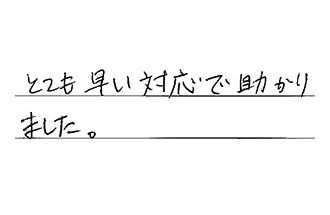 とても早い対応で助かり
ました。